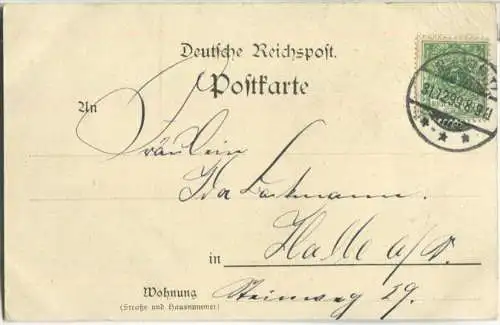 Deutsche Reichspost.
Postkarte
An
Fräulein
Ida
in Halle a/S.
Wohnung Steinweg 29.
(Straße und Hausnummer)
31.12.99.8-9N